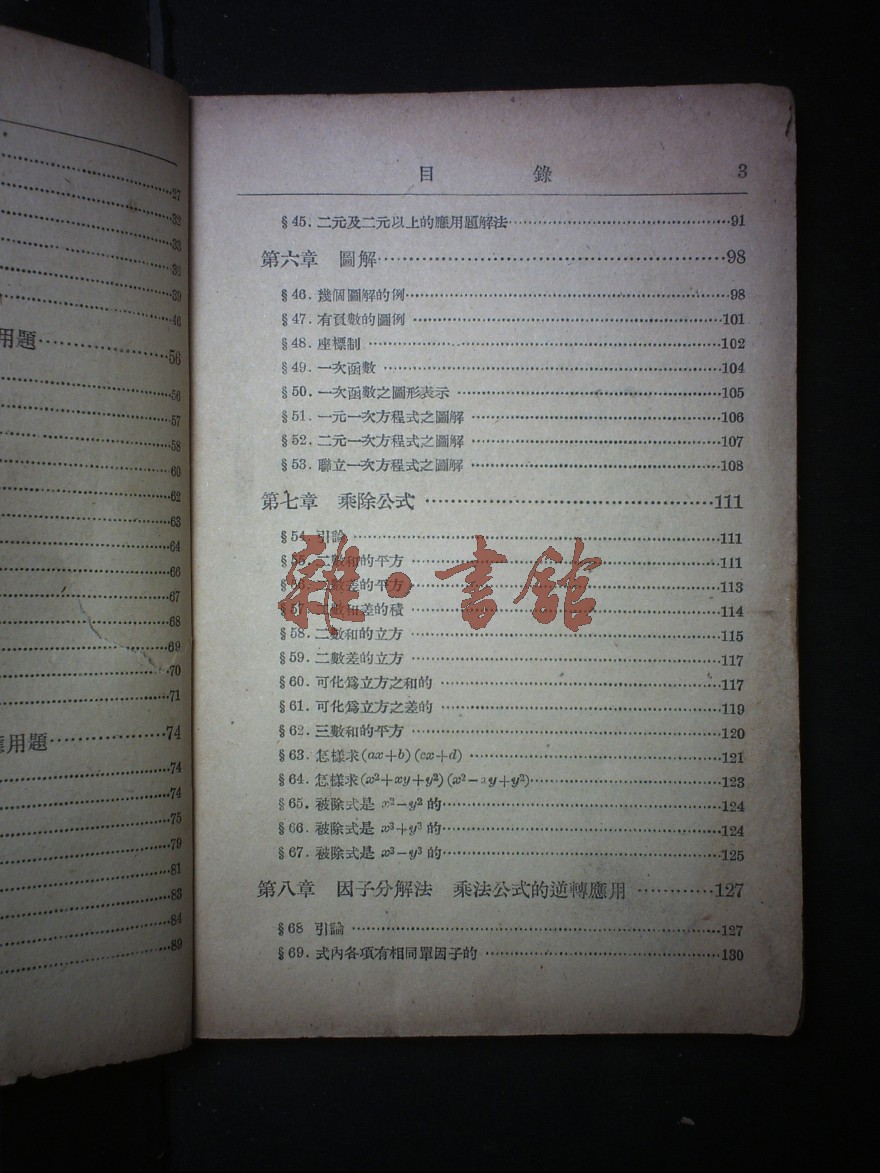 27
32
33
38
39
46
用題……56
56
57
58
60
62
63
64
66
67
68
69
70
71
應用題……74
74
74
75
79
81
83
84
89
目 錄 3
§45. 二元及二元以上的應用題解法……91
第六章 圖解……98
§46. 幾個圖解的例……98
§47. 有負數的圖例……101
§48. 座標制……102
§49. 一次函數……104
§50. 一次函數之圖形表示……105
§51. 一元一次方程式之圖解……106
§52. 二元一次方程式之圖解……107
§53. 聯立一次方程式之圖解……108
第七章 乘除公式……111
§54. 引論……111
§55. 二數和的平方……111
§56. 二數差的平方……113
§57. 二數和差的積……114
§58. 二數和的立方……115
§59. 二數差的立方……117
§60. 可化爲立方之和的……117
§61. 可化爲立方之差的……119
§62. 三數和的平方……120
§63. 怎樣求(ax+b)(cx+d)……121
§64. 怎樣求(x²+xy+y²)(x²−xy+y²)……123
§65. 被除式是 x²−y² 的……124
§66. 被除式是 x³+y³ 的……124
§67. 被除式是 x³−y³ 的……125
第八章 因子分解法 乘法公式的逆轉應用……127
§68 引論……127
§69. 式內各項有相同單因子的……130
雜·書館